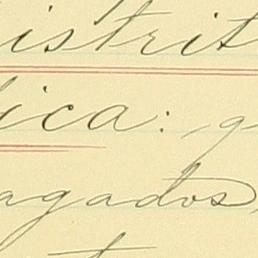 istrit
ica: g
agados,